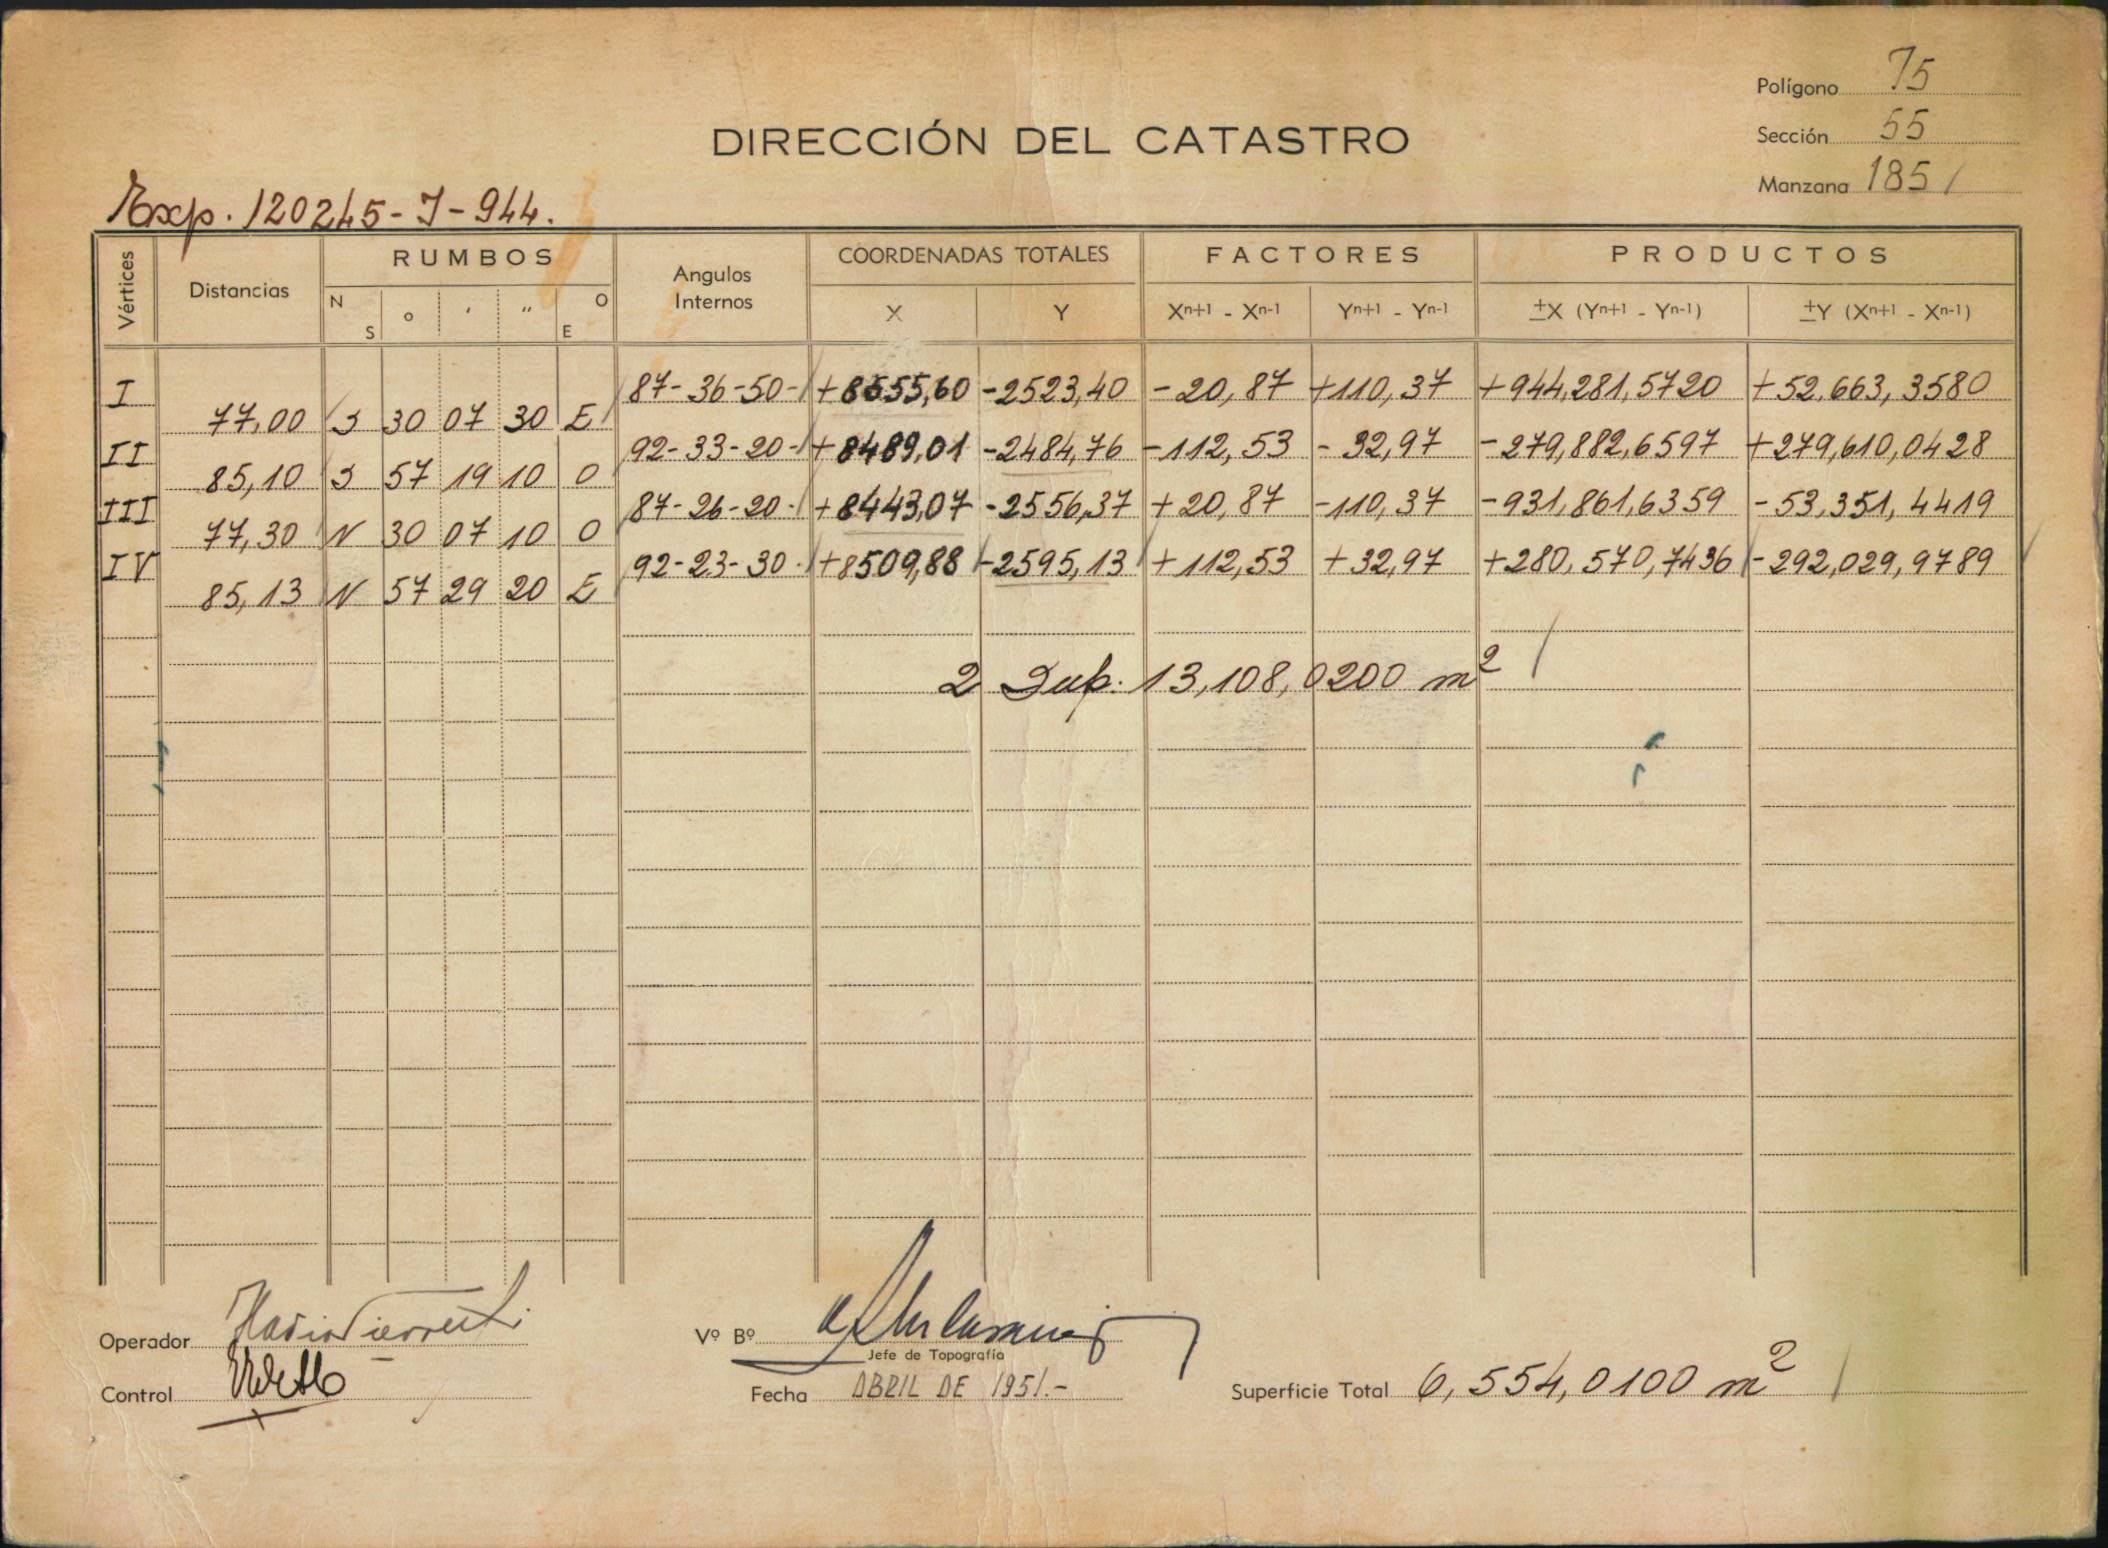 Polígono 75
DIRECCIÓN DEL CATASTRO
Sección 55
Manzana 185
Exp. 120245-J-944.
Vértices Distancias RUMBOS Angulos Internos COORDENADAS TOTALES FACTORES PRODUCTOS
N S o ' " O E X Y Xn+1 - Xn-1 Yn+1 - Yn-1 ±X (Yn+1 - Yn-1) ±Y (Xn+1 - Xn-1)
I 87-36-50- +8555,60 -2523,40 -20,87 +110,37 +944,281,5720 +52.663,3580
77,00 S 30 07 30 E
II 92-33-20- +8489,01 -2484,76 -112,53 -32,97 -279,882,6597 +279,610,0428
85,10 S 57 19 10 O
III 87-26-20- +8443,07 -2556,37 +20,87 -110,37 -931,861,6359 -53,351,4419
77,30 N 30 07 10 O
IV 92-23-30- +8509,88 -2595,13 +112,53 +32,97 +280,570,7436 -292,029,9789
85,13 N 57 29 20 E
2 Sup. 13,108,0200 m2
Operador
Vº Bº
Jefe de Topografía
Control
Fecha ABRIL DE 1951.-
Superficie Total 6,554,0100 m2